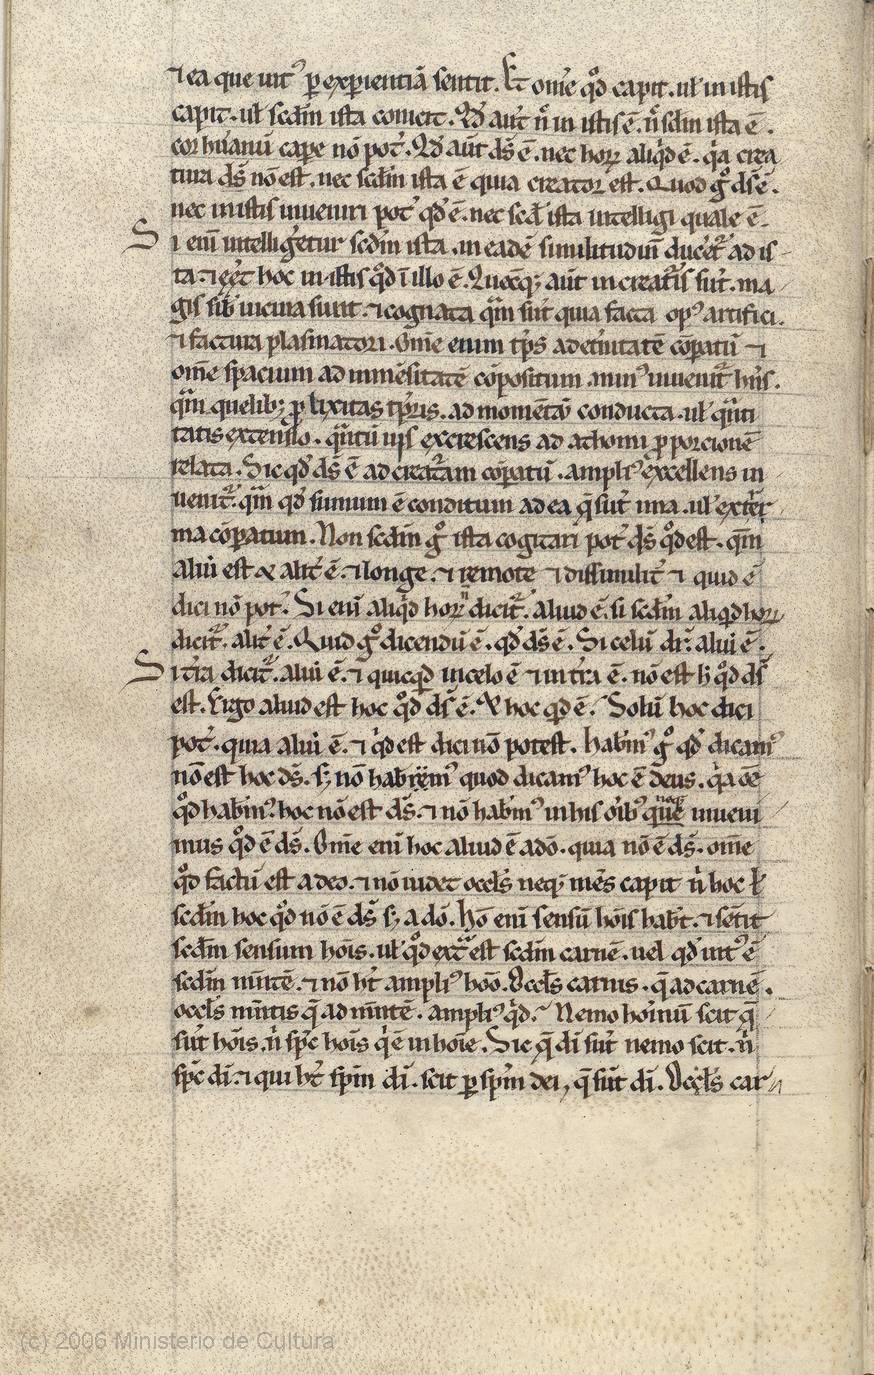 ⁊ ea que intꝰ ꝑ exꝑientiā sentit. Et om̄e qͦd capit. ul̓ in istis
capit. ul̓ scd̄m ista conicit. Qd̓ aut̄ n̄ in istis ē. n̄ scd̄m ista ē.
cor hūanū caꝑe nō pot̓. Qd̓ aūt ds̄ ē. nec hoꝝ aliqͥd ē. qͥa crea
tura ds̄ nō est. nec scd̄m ista ē quia creator est. Quod gͦ ds̄ ē.
nec in istis inueniri pot̓ qd̓ ē. nec scd̄ ista intelligi quale ē.
Si enī intelligeretur scd̄m ista. in eadē similitudinē ducer̄t ad is
ta. ⁊ eēt hoc in istis qͦd ī illo ē. Quecūqꝫ aūt in creat̓is sūt. ma
gis sibi iuncta sunt. ⁊ cognata qͣm sūt quia facta opꝰ artifici.
⁊ factura plasmatori. Om̄e enim tp̄s ad et̓nitatē cōpatū ⁊
om̄e spacium ad inmēsitatē cōpositum. minꝰ inuenit̓ hn̄s.
qͣm queliꝫ ꝓlixitas tꝑis. ad momētū conducta. ul̓ qͣnti
tatis extensio. qͣntūuis excrescens ad athomi ꝓporcionē
relata. Sic qd̓ ds̄ ē ad creat̓am cōpatū. ampliꝰ excellens in
uenit̓. qͣm qd̓ sūmum ē conditum ad ea q̄ sūt ima. ul̓ extre
ma cōpatum. Non scd̄m gͦ ista cogitari pot̓ ds̄ qͦd est. qm̄
aliud est ⁊ alit̓ ē. ⁊ longe. ⁊ remote ⁊ dissimilit̓ ⁊ quid ē
dici nō pot̓. Si enī aliqͥd hoꝝ dicit̓. aliud ē. si scd̄m aliqd hoꝝ
dicit̓. alit̓ ē. Quid gͦ dicendū ē. qd̓ ds̄ ē. Si celū dr̄. aliud ē.
Si t̓ra dicit̓. aliud ē. ⁊ quicqͥd in celo ē ⁊ in t̓ra ē. nō est h̓ qͦd ds̄
est. Ergo aliud est hoc qͦd ds̄ ē. ⁊ hoc qd ē. Solū hoc dici
pot̓. quia aliud ē. ⁊ qͥd est dici nō potest. Habemꝰ gͦ qd̓ dicamꝰ
nō est hoc ds̄. sꝫ nō habemꝰ quod dicamꝰ hoc ē deus. qͥa oē
qͦd habemꝰ. hoc nō est ds̄. ⁊ nō habemꝰ in his oībꝰ inueni
mus qͦd ē ds̄. Om̄e enī hoc aliud ē a dō. quia nō ē ds̄. om̄e
qͦd factū est a deo. ⁊ nō uidet ocl̓s neqꝫ mēs capit n̄ hoc ul̓
scd̄m hoc qͦd nō ē ds̄ sꝫ a dō. Hō enī sensū hōis habet. ⁊ sētit
scd̄m sensum hōis. ul̓ qͦd extͣ est scd̄m carnē. uel qd̓ intꝰ ē
scd̄m mētē. ⁊ nō h̄t ampliꝰ hōo. Ocl̓s carnis. q̄ ad carnē.
ocl̓s mētis q̄ ad mētē. ampliꝰ qͥd. Nemo hōinū scit q̄
sūt hōis. n̄ sp̄c hōis qͥ ē in hōie. Sic q̄ di sūt nemo scit. n̄
sp̄c di. ⁊ qui h̄t sp̄m di. scit ꝑ sp̄m dei, q̄ sūt di. Ocl̓s car
(c) 2006 Ministerio de Cultura